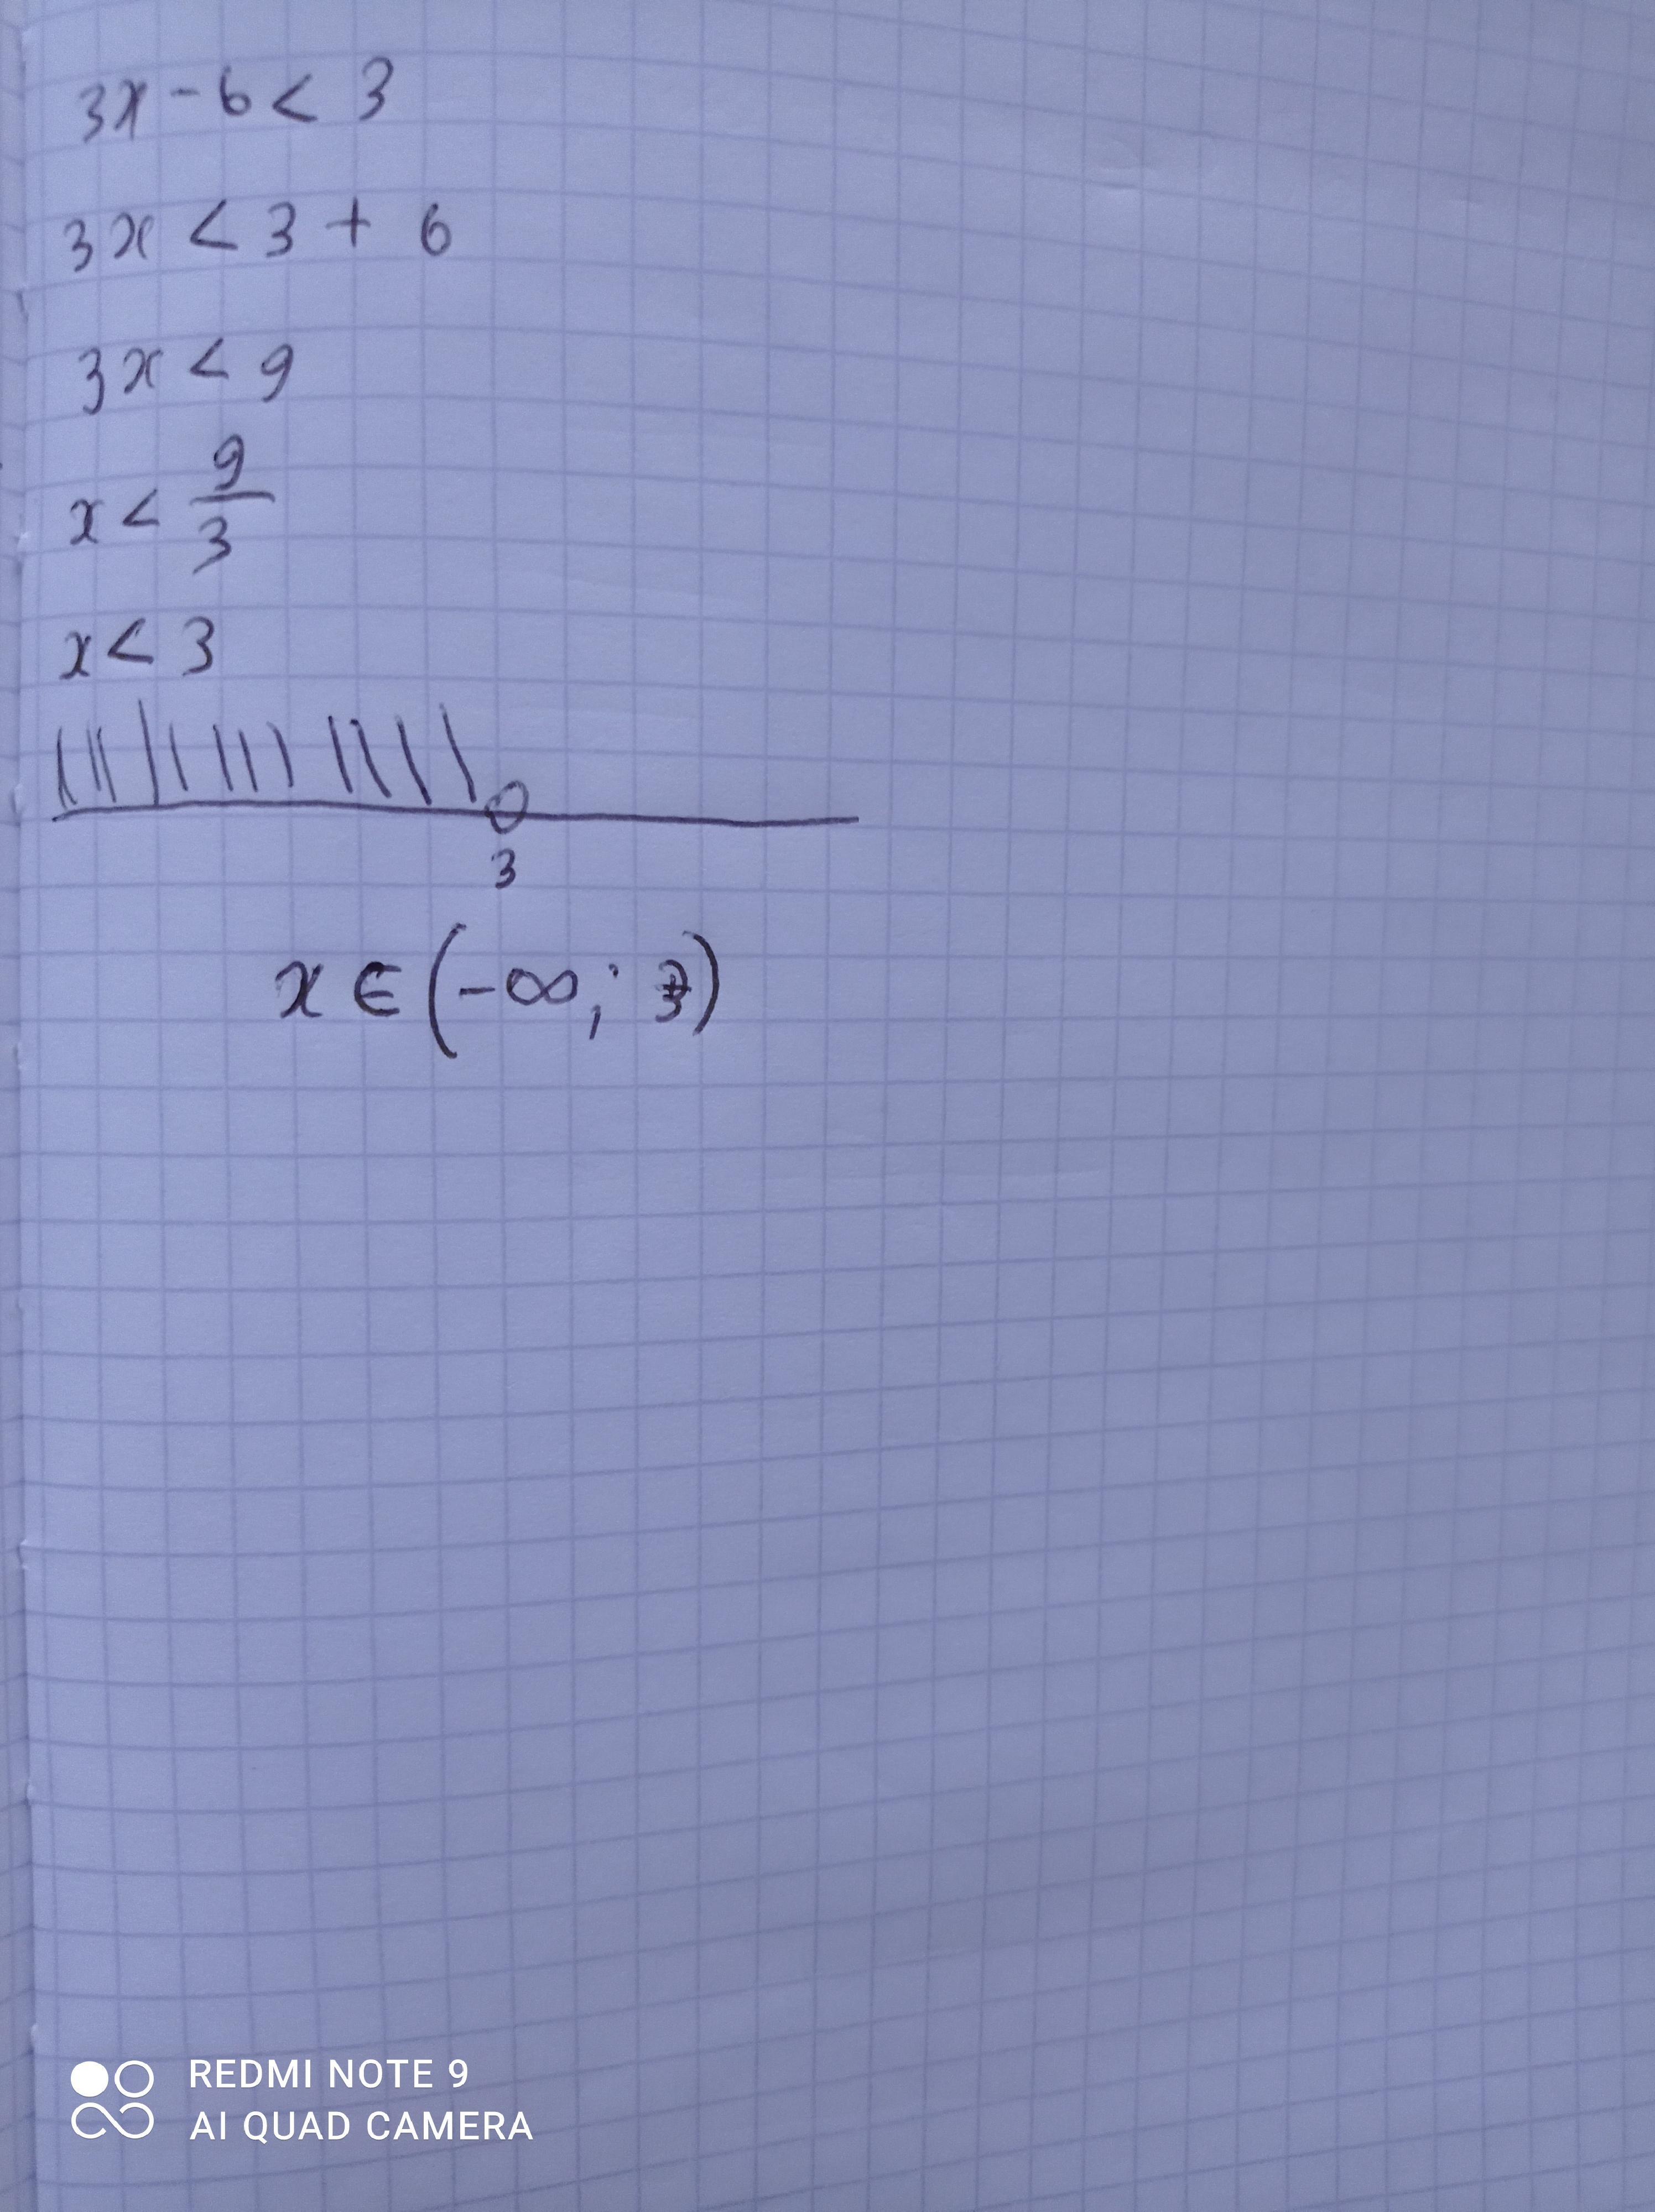 3x - 6 < 3
3x < 3 + 6
3x < 9
x < 9/3
x < 3
3
x ∈ (-∞; 3)
REDMI NOTE 9
AI QUAD CAMERA